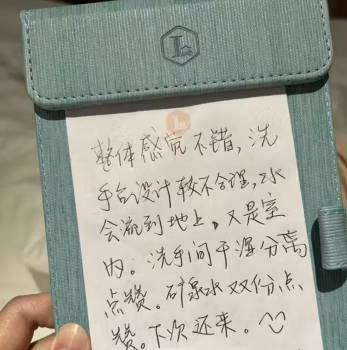 整体感觉不错,洗
手台设计较不合理,水
会流到地上,又是室
内。洗手间干湿分离
点赞。矿泉水双份点
赞。下次还来。